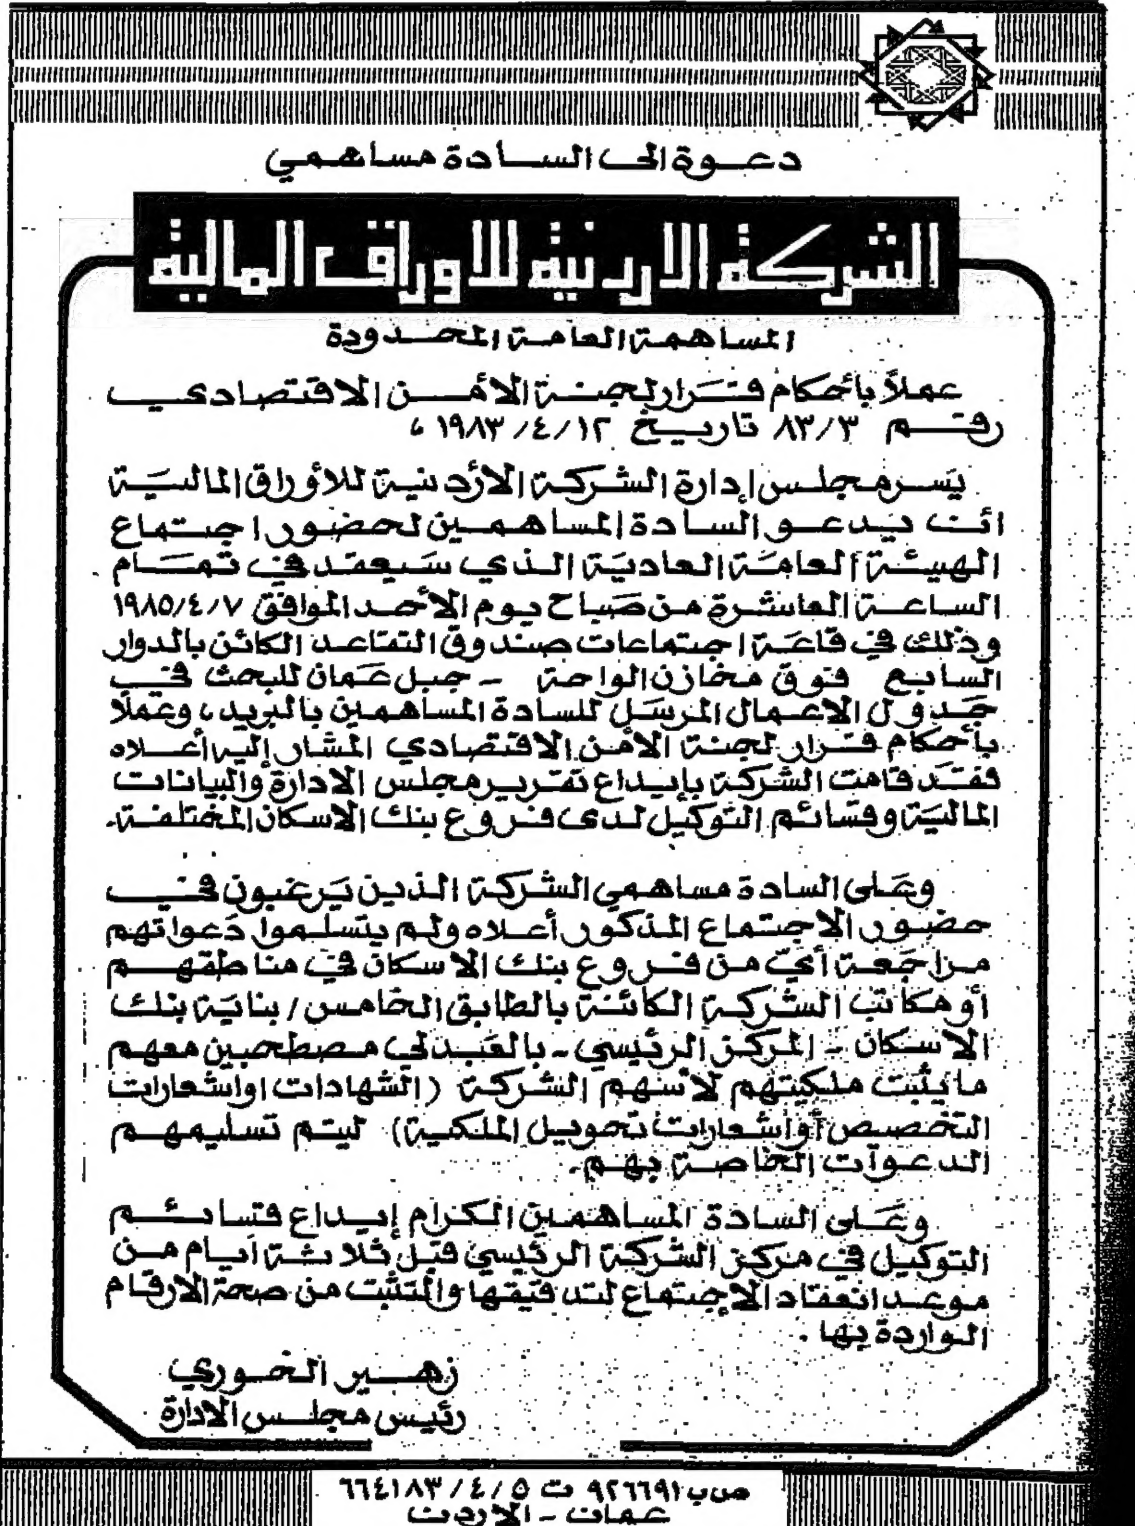 دعوة الى السادة مساهمي
الشركة الاردنية للاوراق المالية
المساهمة العامة المحدودة
عملاً بأحكام قرار لجنة الأمن الاقتصادي
رقم ٨٣/٣ تاريخ ١٩٨٣/٤/١٢ ،
يسر مجلس إدارة الشركة الأردنية للأوراق المالية
ان يدعو السادة المساهمين لحضور اجتماع
الهيئة العامة العادية الذي سيعقد في تمام
الساعة العاشرة من صباح يوم الأحد الموافق ١٩٨٥/٤/٧
وذلك في قاعة اجتماعات صندوق التقاعد الكائن بالدوار
السابع فوق مخازن الواحة - جبل عمان للبحث في
جدول الاعمال المرسل للسادة المساهمين بالبريد، وعملاً
بأحكام قرار لجنة الأمن الاقتصادي المشار إليه أعلاه
فقد قامت الشركة بإيداع تقرير مجلس الادارة والبيانات
المالية وقسائم التوكيل لدى فروع بنك الاسكان المختلفة.
وعلى السادة مساهمي الشركة الذين يرغبون في
حضور الاجتماع المذكور أعلاه ولم يتسلموا دعواتهم
مراجعة أي من فروع بنك الاسكان في مناطقهم
أو مكاتب الشركة الكائنة بالطابق الخامس / بناية بنك
الاسكان - المركز الرئيسي - بالعبدلي مصطحبين معهم
ما يثبت ملكيتهم لأسهم الشركة (الشهادات او اشعارات
التخصيص أو اشعارات تحويل الملكية) ليتم تسليمهم
الدعوات الخاصة بهم.
وعلى السادة المساهمين الكرام إيداع قسائم
التوكيل في مركز الشركة الرئيسي قبل ثلاثة أيام من
موعد انعقاد الاجتماع لتدقيقها والتثبت من صحة الارقام
الواردة بها.
زهير الخوري
رئيس مجلس الادارة
ص ب ٩٢٦٦٩١ ت ٥ / ٤ / ٦٦٤١٨٣
عمان - الاردن